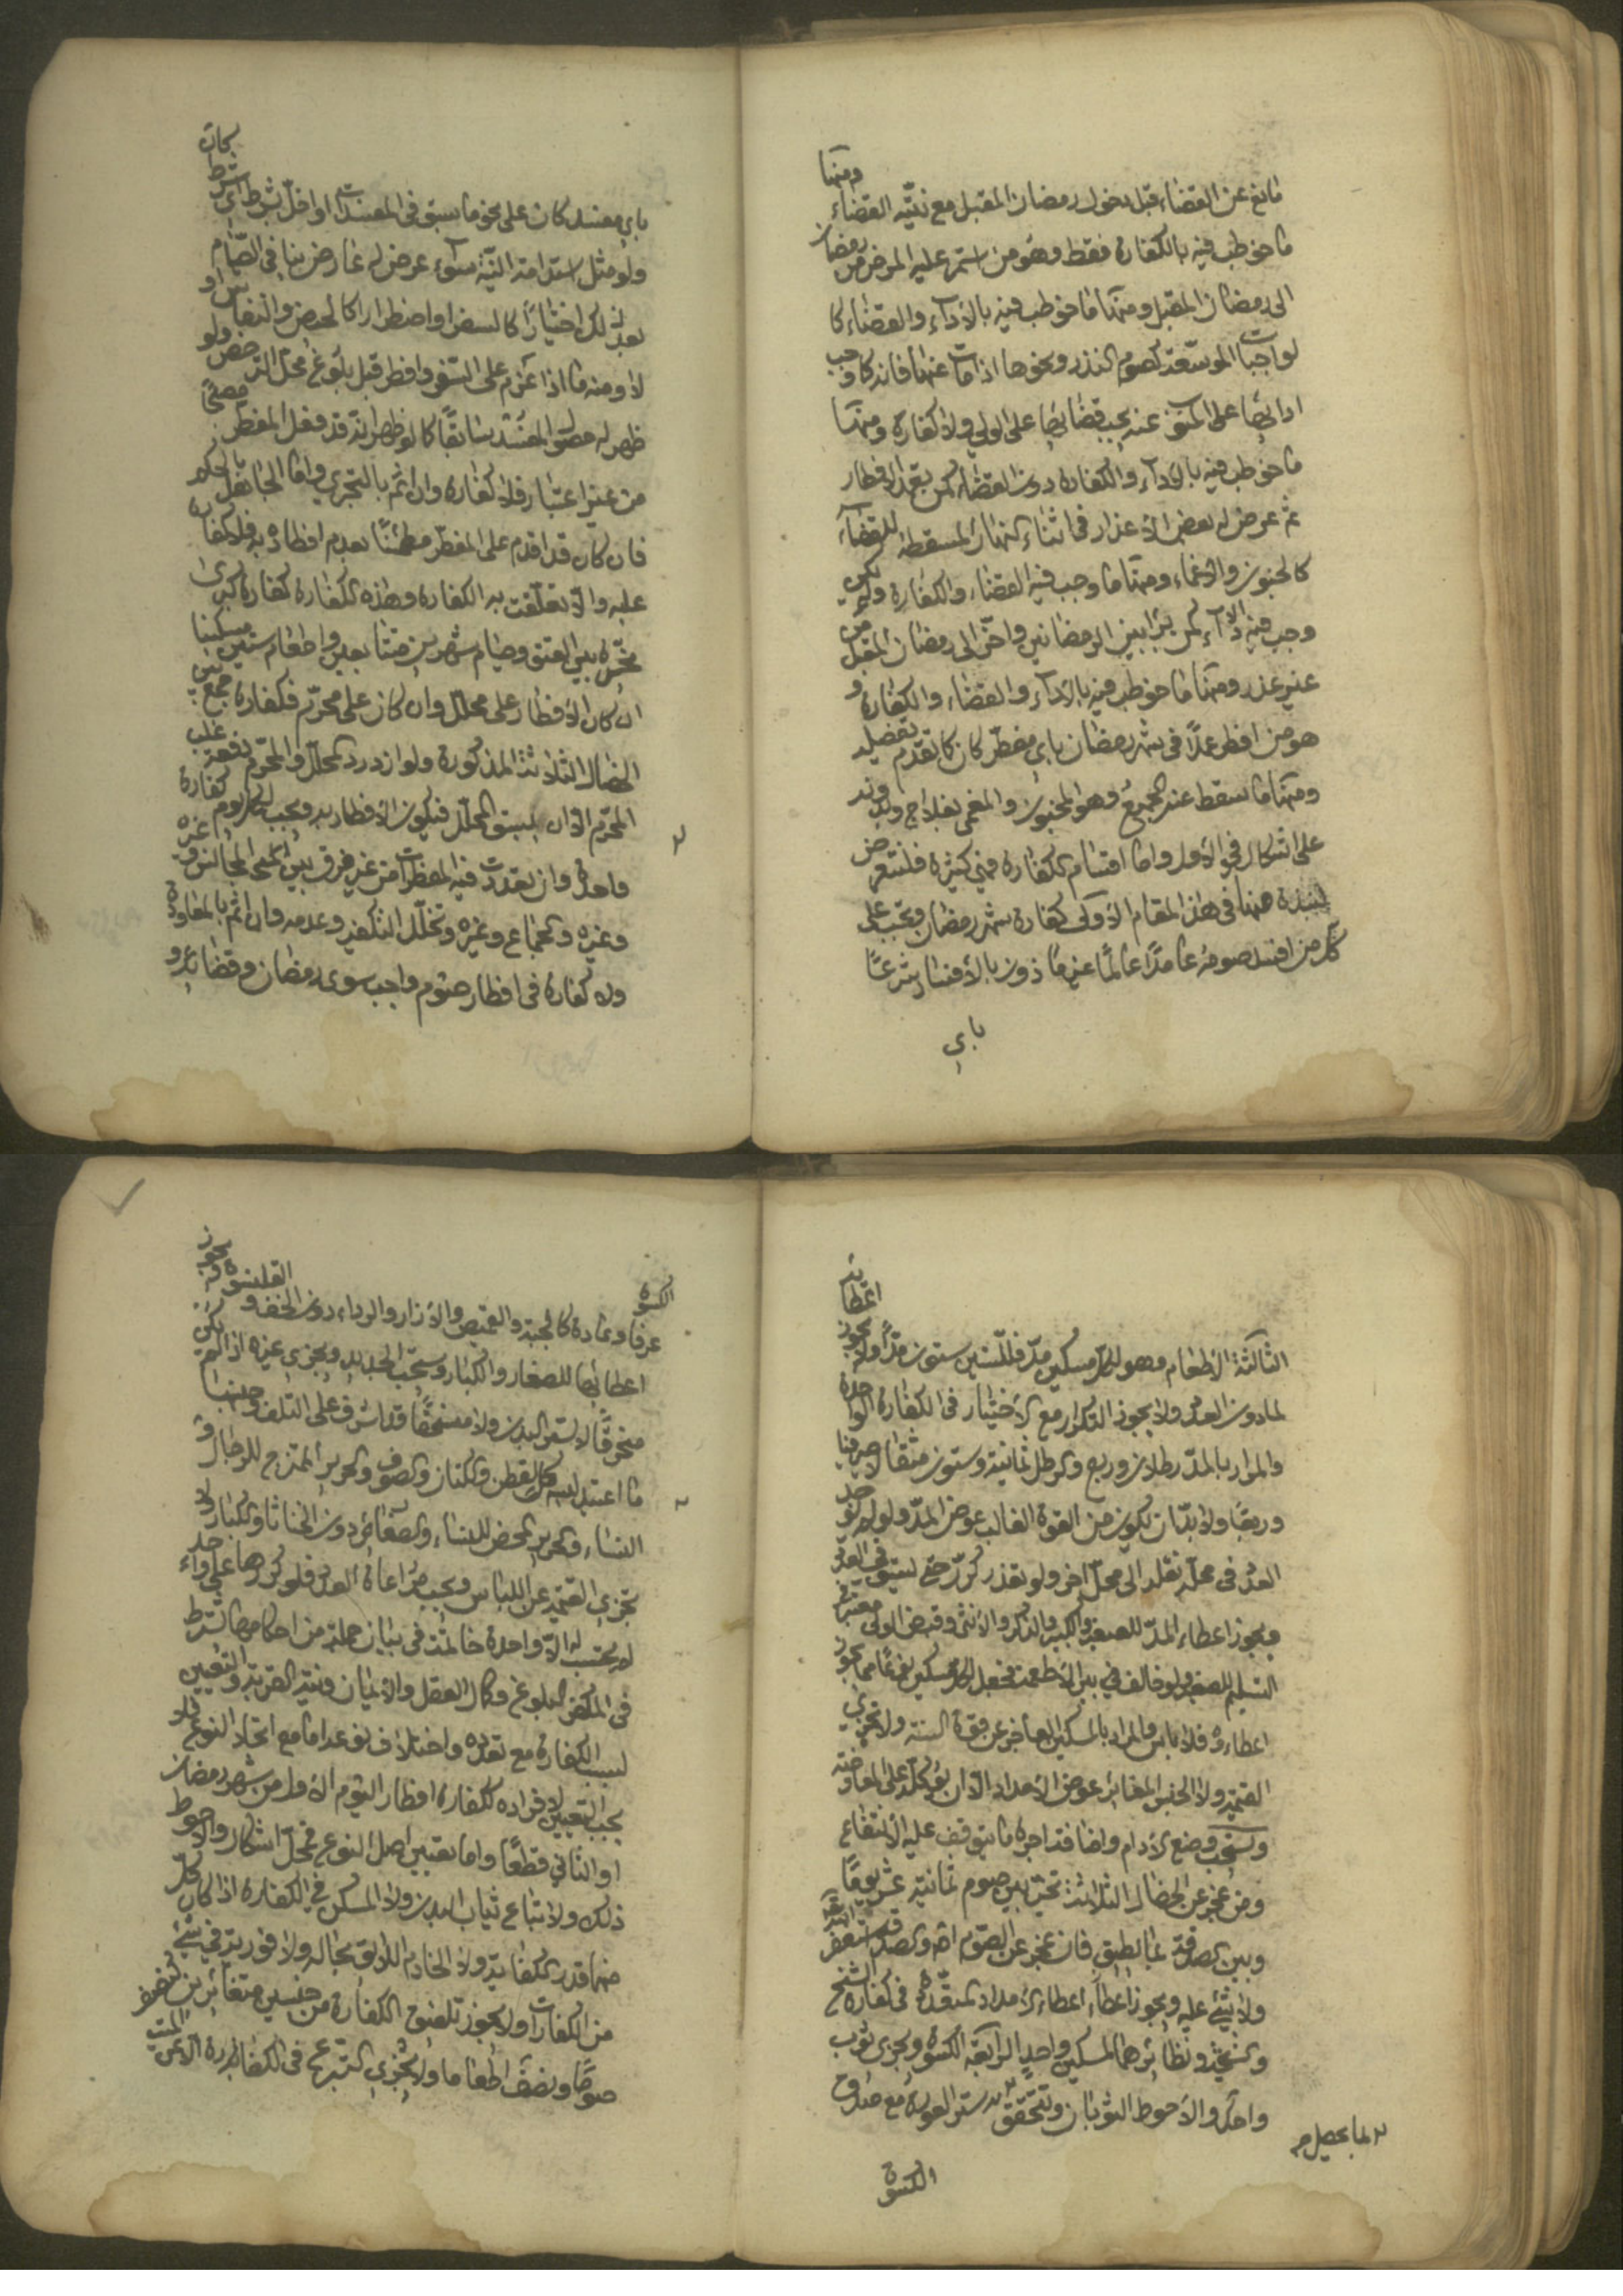 مانع عن القضاء قبل دخول رمضان المقبل مع نيّته القضاء ومنها
ما خوطب فيه بالكفارة فقط وهو من استمر عليه المرض من رمضان
الى رمضان المقبل ومنها ما خوطب فيه بالأداء والقضاء كا
لواجبات الموسّعة كصوم النذر ونحوها اذا مات عنها فانه كما وجب
ادائها على المنوب عنه يجب قضائها على الولي ولا كفارة ومنها
ما خوطب فيه بالاداء والكفارة دون القضاء كمن تعمد الافطار
ثم عرض له بعض الأعذار في اثناء النهار المسقطة للقضاء
كالجنون والاغماء ومنها ما وجب فيه القضاء والكفارة ولم يكن
وجب فيه الاداء كمن برأ بين الرمضانين واخّر الى رمضان المقبل من
غير عذر ومنها ما خوطب فيه بالأداء والقضاء والكفارة و
هو من افطر عمدًا في شهر رمضان باي مفطّر كان كما تقدّم تفضيله
ومنها ما سقط عنه الجميع وهو المجنون والمغمى بعلاج وبدونه
على اشكال في الأول واما اقسام الكفارة فهي كثيرة فلنتعرض
لنبذة منها في هذا المقام الأولى كفارة شهر رمضان وتجب على
كل من افسد صومه عامدًا عالمًا غير مأذون بالأفساد شرعًا
باي
باي مفسد كان على نحو ما سبق في المفسدات او اخلّ بشرط اي شرط كان
ولو مثل استدامة النيّة سواء عرض له عارض ينافي الصّيام
بعد ذلك اختيارًا كالسفر او اضطرارا كالحيض والنفاس او
لا ومنه ما اذا عزم على السفر وافطر قبل بلوغ محلّ الترخص ولو
ظهر له حصول المفسد سابقًا كما لو ظهر انه قد فعل المفطر مصبحًا
من غير اعتبار فلا كفارة وان اثم بالتجري واما الجاهل بالحكم
فان كان قد اقدم على المفطر مطمئنًا بعدم افطاره به فلا كفارة
عليه والّا تعلّقت به الكفارة وهذه الكفارة كفارة كبرى
مخيّرة بين العتق وصيام شهرين متتابعين واطعام ستين مسكينا
ان كان الأفطار على محلل وان كان على محرّم فكفارة جمع بين
الخصال الثلاثة المذكورة ولو ازدرد المحلّل والمحرّم دفعة غلب
المحرّم الّا ان يسبق المحلّل فيكون الأفطار به ويجب لكل يوم كفارة
واحدة وان تعددت فيه المفطرات من غير فرق بين المتحد الجنس وغيره
وغيره والجماع وغيره وتخلّل التكفير وعدمه وان اثم بالمعاودة
ولا كفارة في افطار صوم واجب سوى رمضان وقضائه و
الثالثة الأطعام وهو لكلّ مسكين مدّ فللستين ستون مدًّا ولا يجوز اعطائه
لما دون العدد ولا يجوز التكرار مع الأختيار في الكفارة الواحدة
والمراد بالمدّ رطلان وربع والرطل ثمانية وستون مثقالا صيرفيا
وربعًا ولا بدّ ان يكون من القوة الغالب عوض المدّ ولو لم يوجد
العدد في محلّه نقله الى محلّ اخر ولو تعذر كرّر حتى يستوفي العدد
ويجوز اعطاء المدّ للصغير والكبير والذكر والأنثى وقبض الولي معتبر في
التسليم للصغير ولو خالف في بين الأطعمة فجعل لكلّ مسكين نوعًا مما يجوز
اعطاؤه فلا باس والمراد بالمسكين العاجز عن قوة السنة ولا تجزي
القيمة ولا الجنس المغاير عوض الأمداد الّا ان يوكله على المعاوضة
ويستحب وضع الأدام واضافة اجرة ما يتوقف عليه الأنتفاع
ومن عجز عن الخصال الثلاث تخيّر بين صوم ثمانية عشر يومًا
وبين الصدقة بما يطيق فان عجز عن الصوم والصدقة استغفر الله
ولا شيء عليه ويجوز اعطاء الأمداد المتعّددة في كفارة الشيخ
والشيخة ونظائرهما لمسكين واحد الرابعة الكسوة ويجزي ثوب
واحد والاحوط الثوبان وتتحقق ستر العورة مع صدق
لما يحصل به
الكسوة
الكسوة
عرفا وعادة كالجبة والقميص والأزار والرداء دون الخف والقلنسوة ويجوز
اعطائها للصغار والكبار ويستحبّ الجديد ويجزي غيره اذا لم يكن
منخرقًا لا يستر البدن ولا منسحقًا قد اشرف على التلف وجنسها
ما اعتيد لبسه كالقطن والكتان والصوف والحرير الممتزج للرجال و
النساء والحرير المحض للنساء والصغار دون الخناثا والكبار ولا
تجزي القيمة عن اللباس ويجب مراعاة العدد فلو كررها على واحد
لم يحتسب له الّا واحدة خاتمة في بيان جملة من احكامها يشترط
في المكفر البلوغ وكمال العقل والأيمان ونيّة القربة والتعيين
لسبب الكفارة مع تعدده واختلاف نوعه اما مع اتحاد النوع فلا
يجب التعيين لافراده ككفارة افطار اليوم الأول من شهر رمضان
او الثاني قطعًا واما تعيين اصل النوع فمحلّ اشكال والاحوط
ذلك ولا تباع ثياب البدن ولا المسكن في الكفارة اذا كان كلّ
منهما قدر الكفاية ولا الخادم اللائق بحاله ولا فورية في شيئ
من الكفارات ولا يجوز تلفيق الكفارة من جنسين متغائرين كنصف
صومًا ونصف اطعاما ولا يجزي التبرع في الكفارة الّا عن الميت